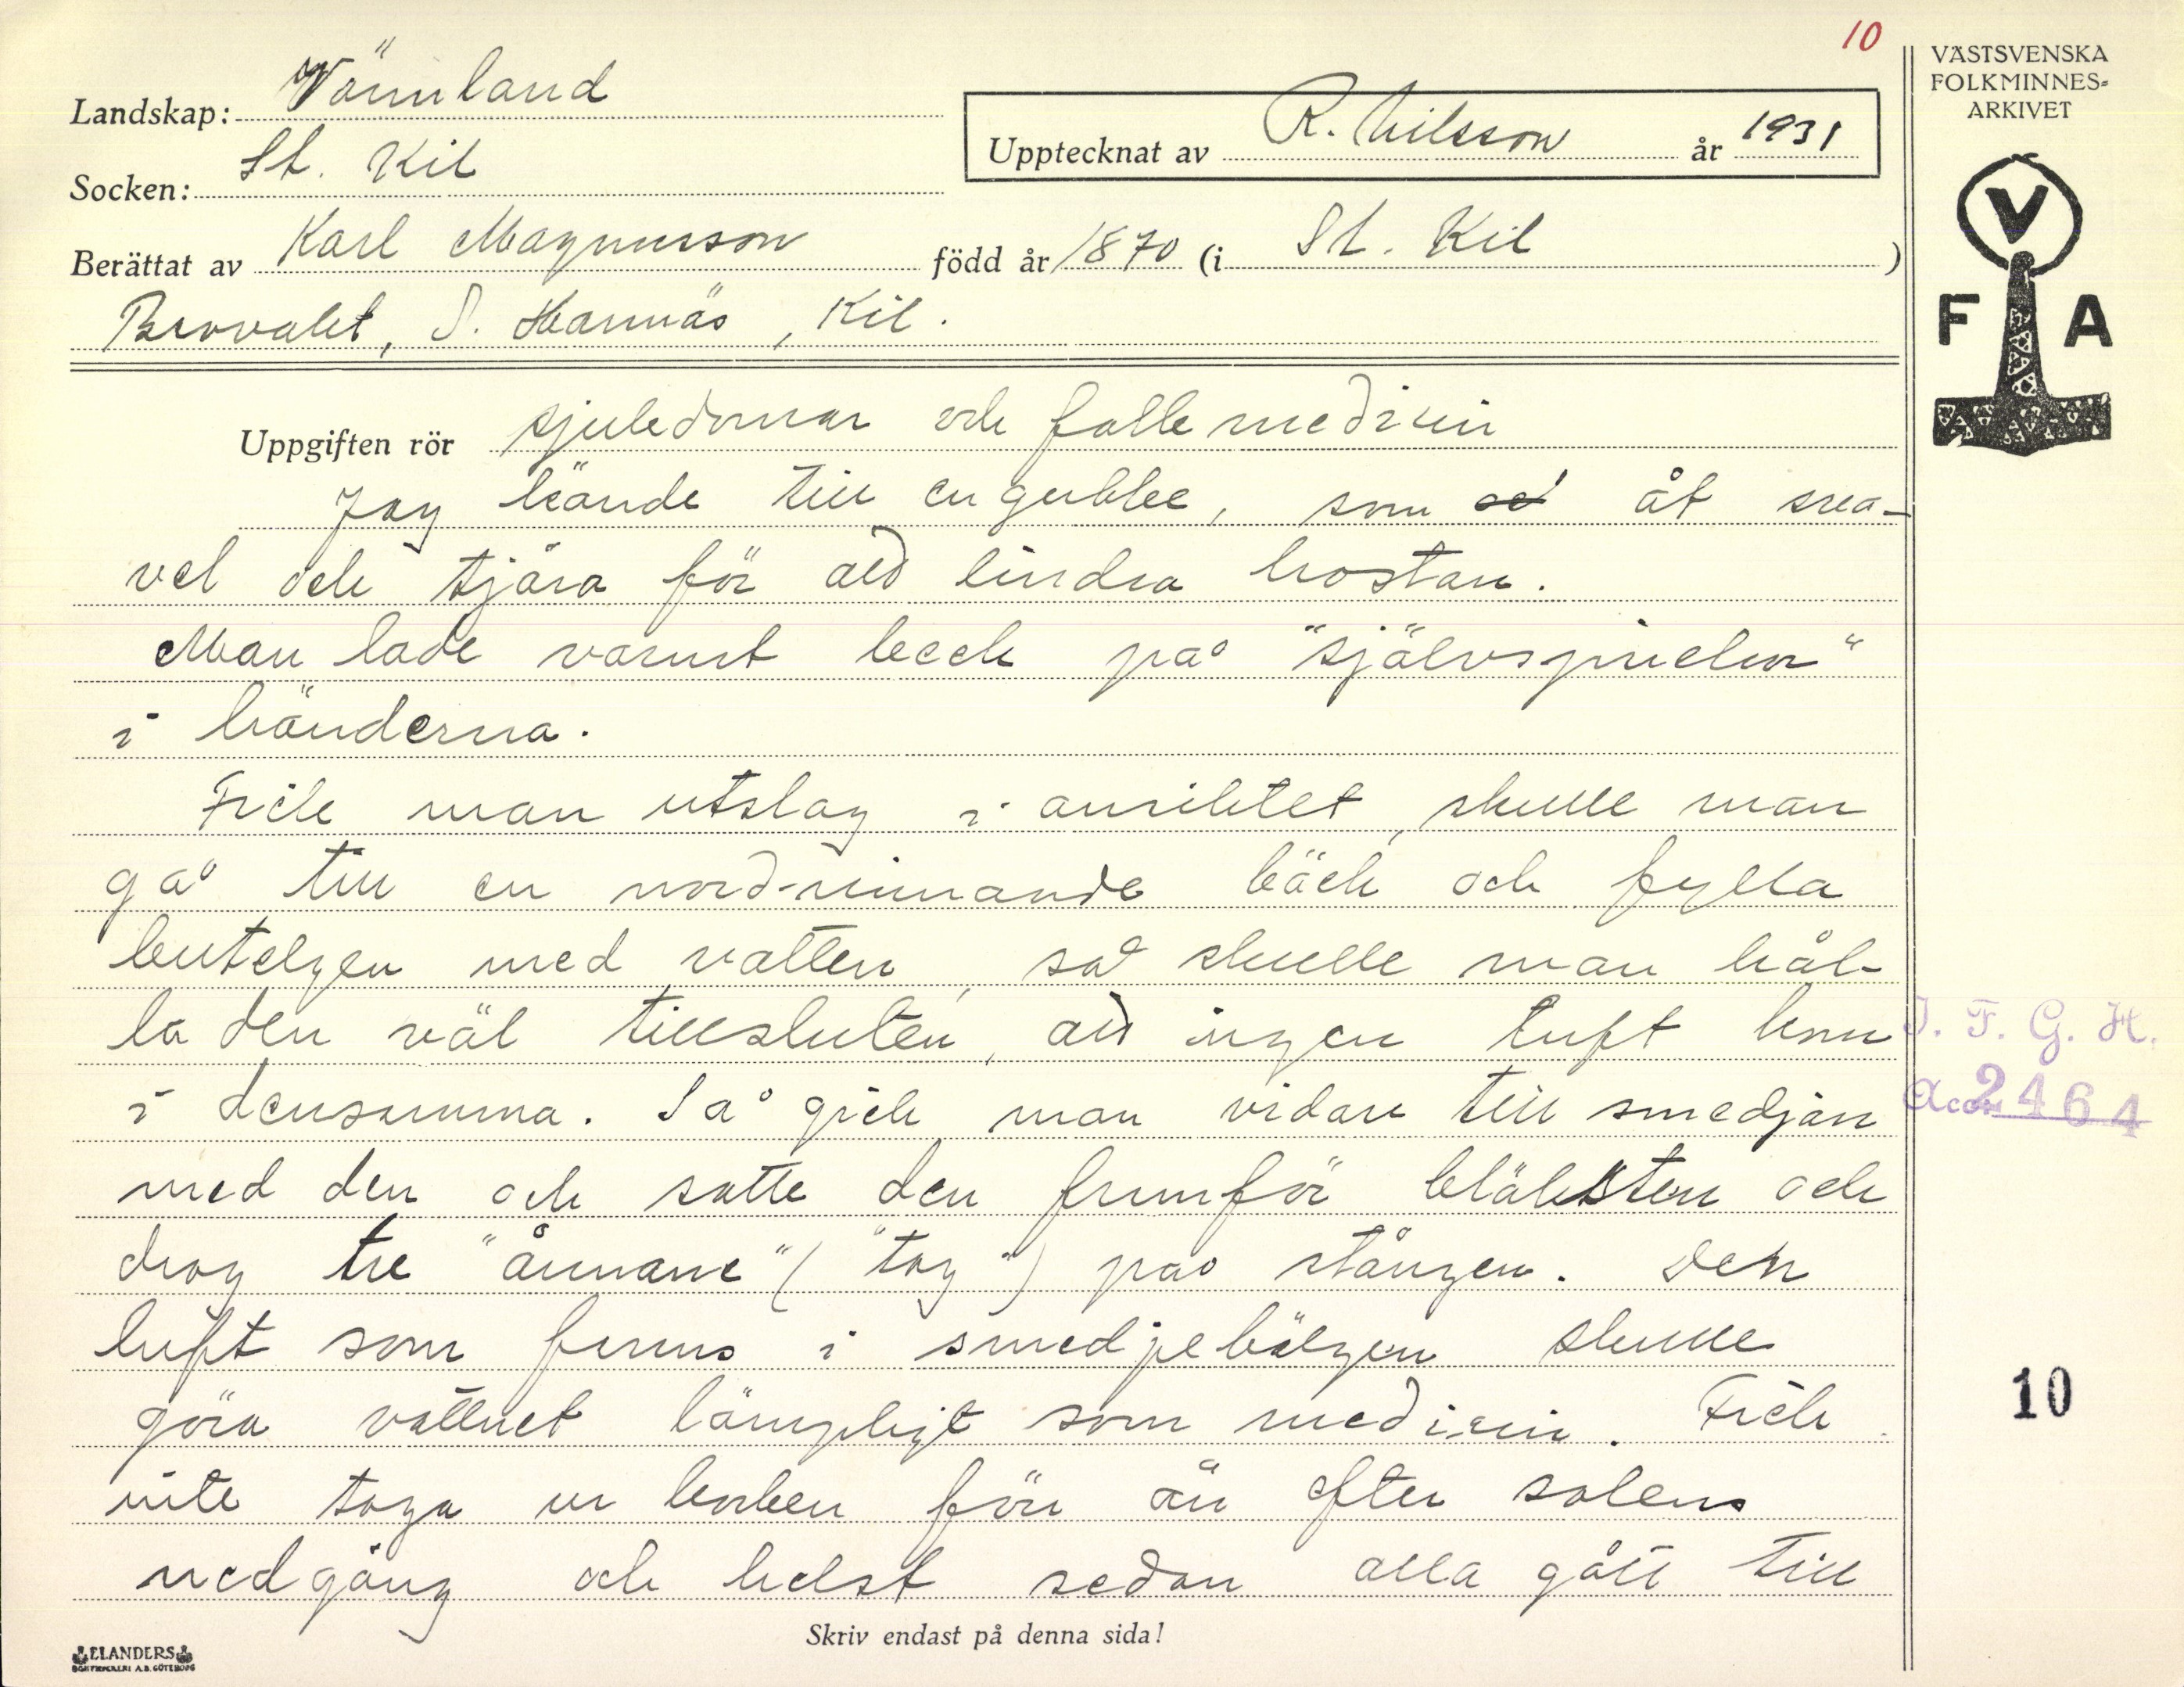 10
VÄSTSVENSKA
FOLKMINNES-
ARKIVET
Landskap: Värmland
Upptecknat av R. Nilsson år 1931
Socken: St. Kil
Berättat av Karl Magnusson född år 1870 (i St. Kil)
Brovalet, S. Hannäs, Kil.
V
F A
Uppgiften rör sjukdomar och folkmedicin
Jag kände till en gubbe, som åt sva-
vel och tjära för att lindra hostan.
Man lade varmt beck på "självsprickor"
i händerna.
Fick man utslag i ansiktet, skulle man
gå till en nord-rinnande bäck och fylla
butelgen med vatten, så skulle man hål-
la den väl tillsluten, att ingen luft kom
i densamma. Så gick man vidare till smedjan
med den och satte den framför bläksten och
drog tre "ånnane" ("tag") på stången. Den
luft som finns i smedjebälgen skulle
göra vattnet lämpligt som medicin. Fick
inte taga ur bäcken förr än efter solens
nedgång och helst sedan alla gått till
I. F. G. H.
Acc. 2464
10
Skriv endast på denna sida!
ELANDERS
BOKTRYCKERI A.B. GÖTEBORG